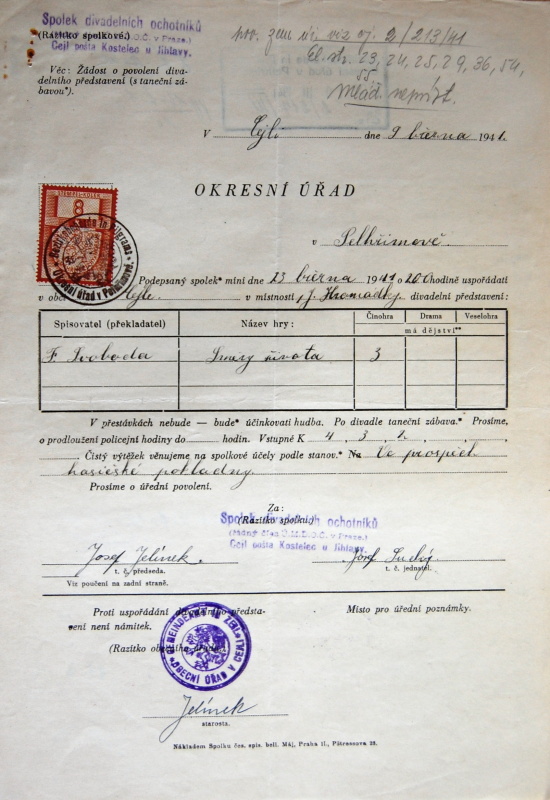 Spolek divadelních ochotníků
(Razítko spolkové.)
Cejl pošta Kostelec u Jihlavy.
por. zem. viz čj. 2/213/41
str. 23, 24, 25, 29, 36, 54,
55.
Mlád. nepříst.
Věc: Žádost o povolení diva-
delního představení (s taneční zá-
bavou*).
V Cejli dne 9 března 1941.
OKRESNÍ ÚŘAD
8
v Pelhřimově
Podepsaný spolek* míní dne 23 března 1941 o 20 hodině uspořádati
v obci Cejle v místnosti p. J. Hromádky divadelní představení:
Spisovatel (překladatel) Název hry: Činohra Drama Veselohra
má dějství**
F. Svoboda Směry života 3
V přestávkách nebude — bude* účinkovati hudba. Po divadle taneční zábava.* Prosíme,
o prodloužení policejní hodiny do hodin. Vstupné K 4, 3, 2,
Čistý výtěžek věnujeme na spolkové účely podle stanov.* Na Ve prospěch
hasičské pokladny.
Prosíme o úřední povolení.
Za:
Spolek divadelních ochotníků
(Razítko spolku:)
(řádný člen Ú.M.D.O.Č. v Praze.)
Cejl pošta Kostelec u Jihlavy.
Josef Jelínek. Josef Suchý
t. č. předseda. t. č. jednatel.
Viz poučení na zadní straně.
Proti uspořádání divadelního předsta- Místo pro úřední poznámky.
vení není námitek.
(Razítko obecního úřadu:)
GEMEINDEAMT IN ZEJL
OBECNÍ ÚŘAD V CEJLI
Jelínek
starosta.
Nákladem Spolku čes. spis. bell. Máj, Praha II., Pštrossova 28.